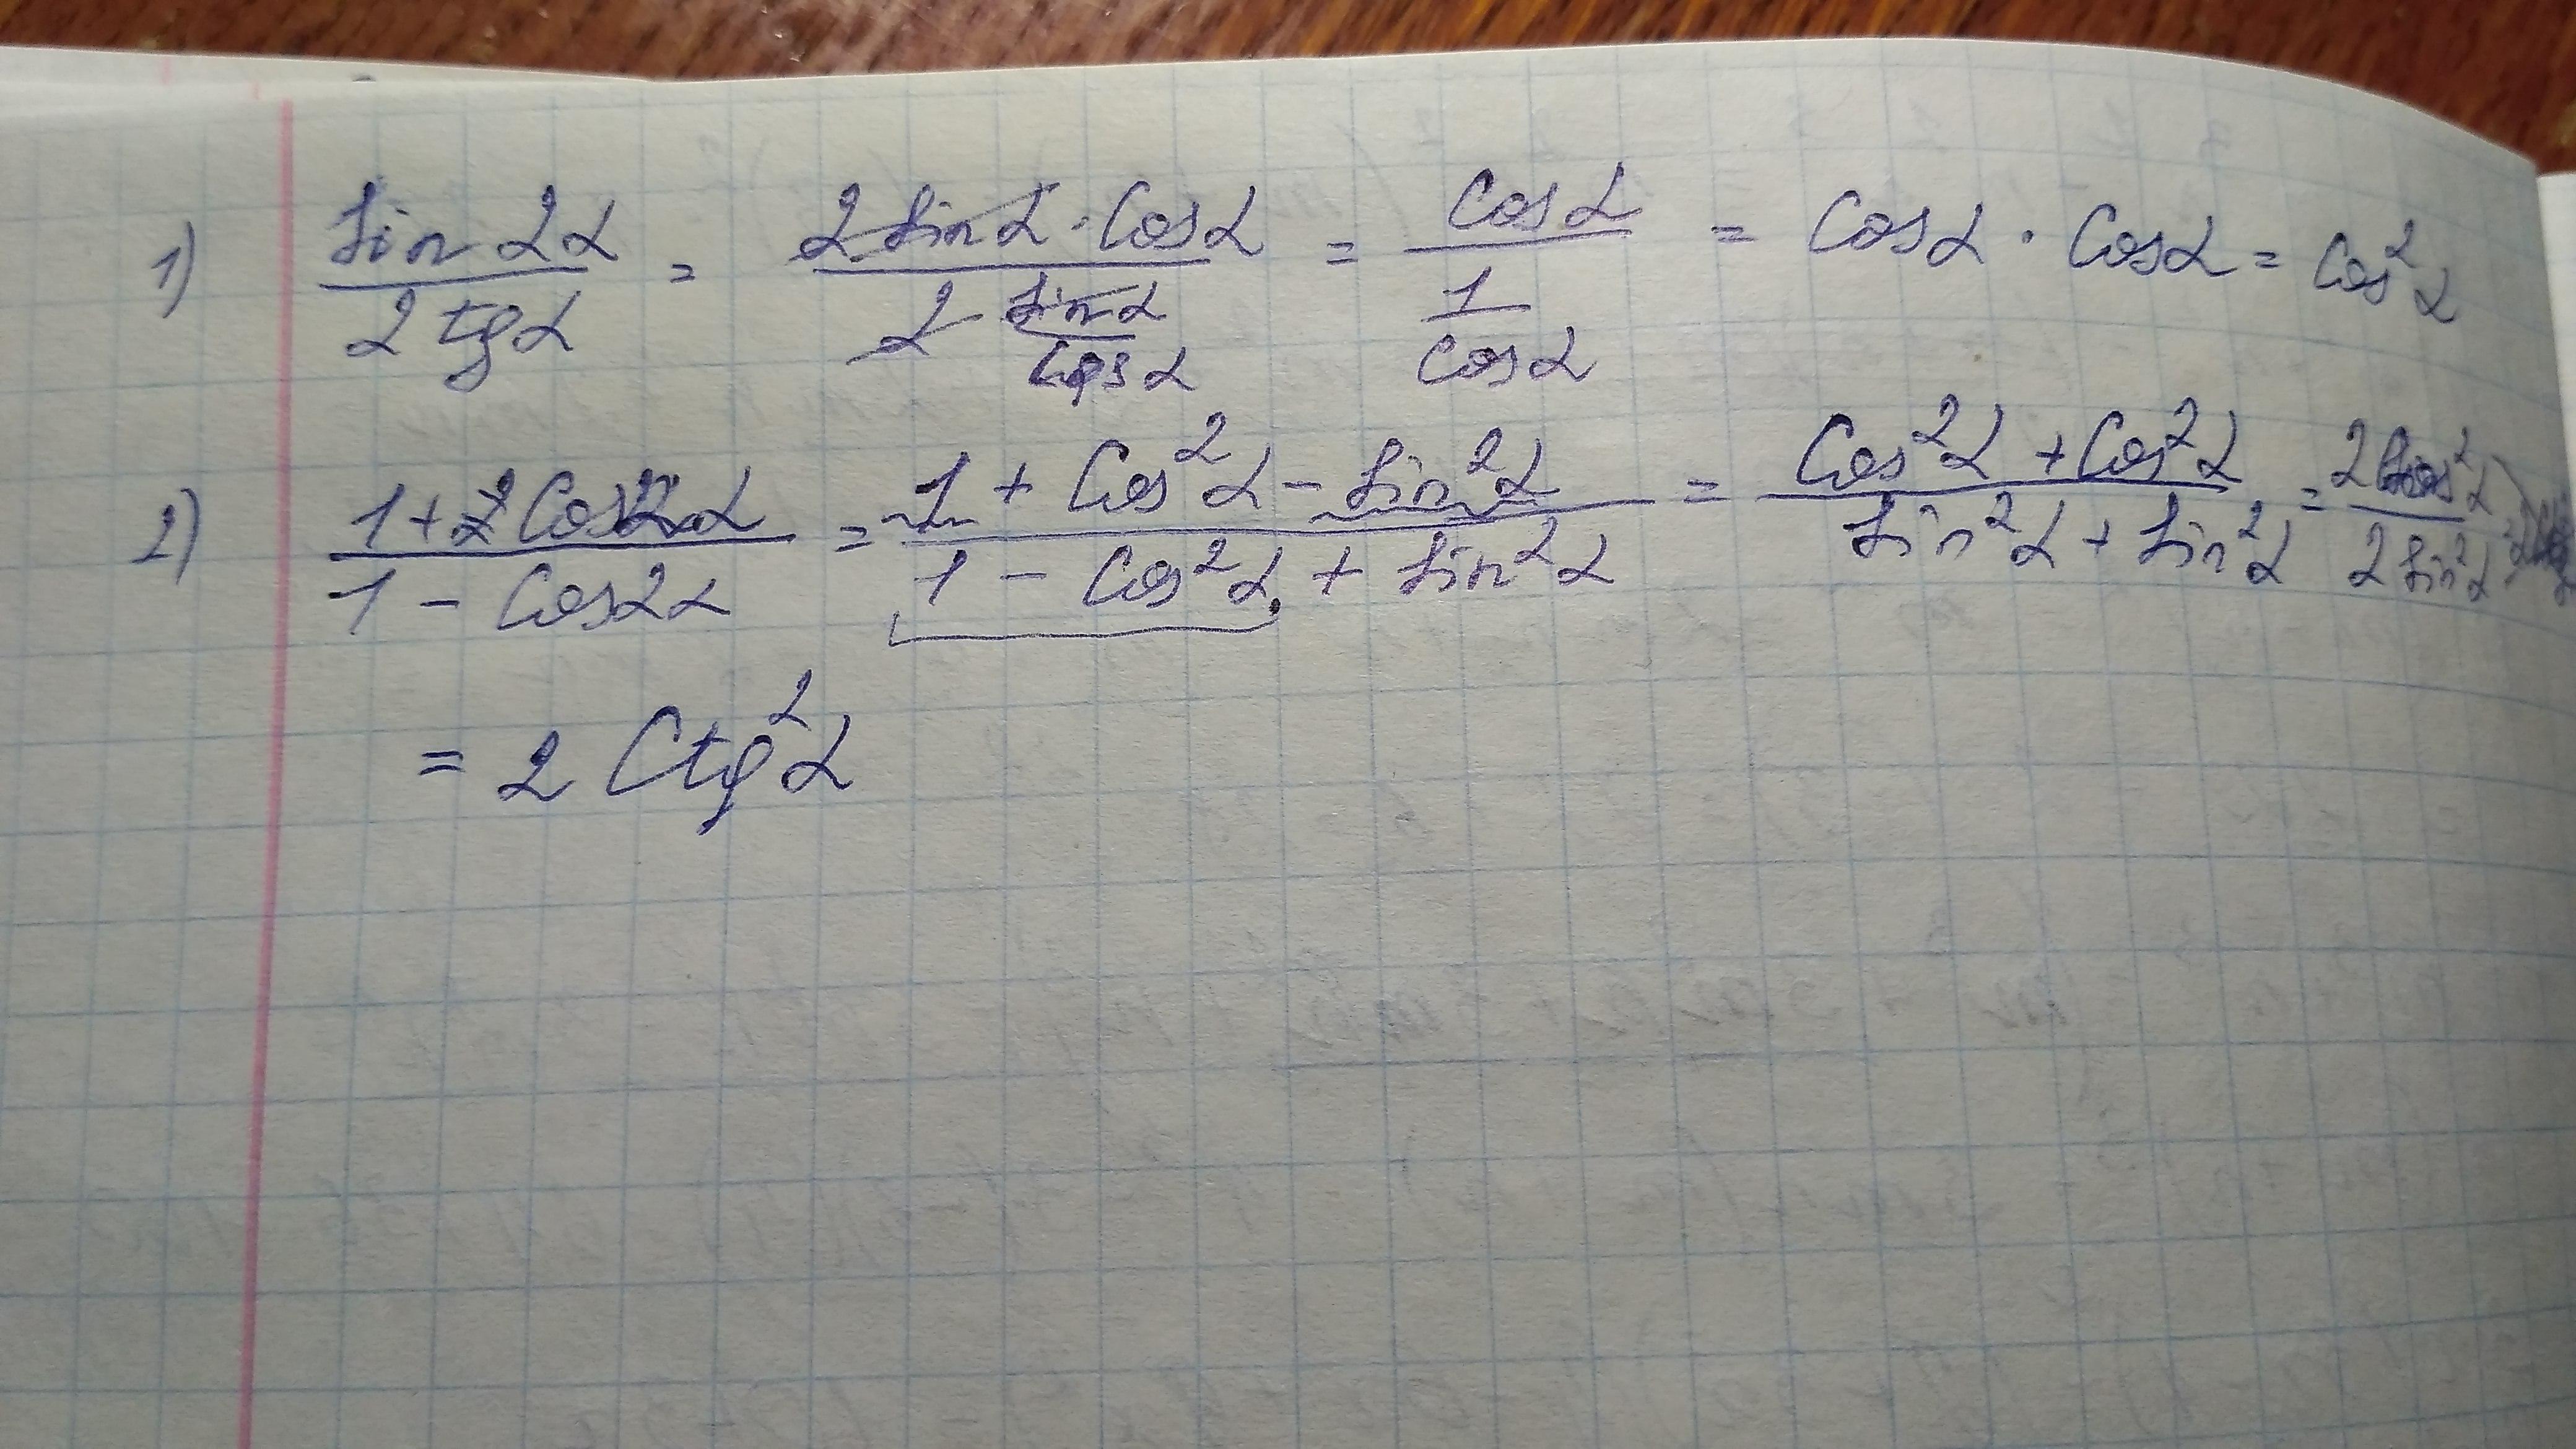 1) sin 2α / 2 tg α = 2 sin α · cos α / 2 sin α / cos α = cos α / 1 / cos α = cos α · cos α = cos² α
2) 1 + cos 2α / 1 - cos 2α = 1 + cos² α - sin² α / 1 - cos² α + sin² α = cos² α + cos² α / sin² α + sin² α = 2 cos² α / 2 sin² α
= 2 ctg² α